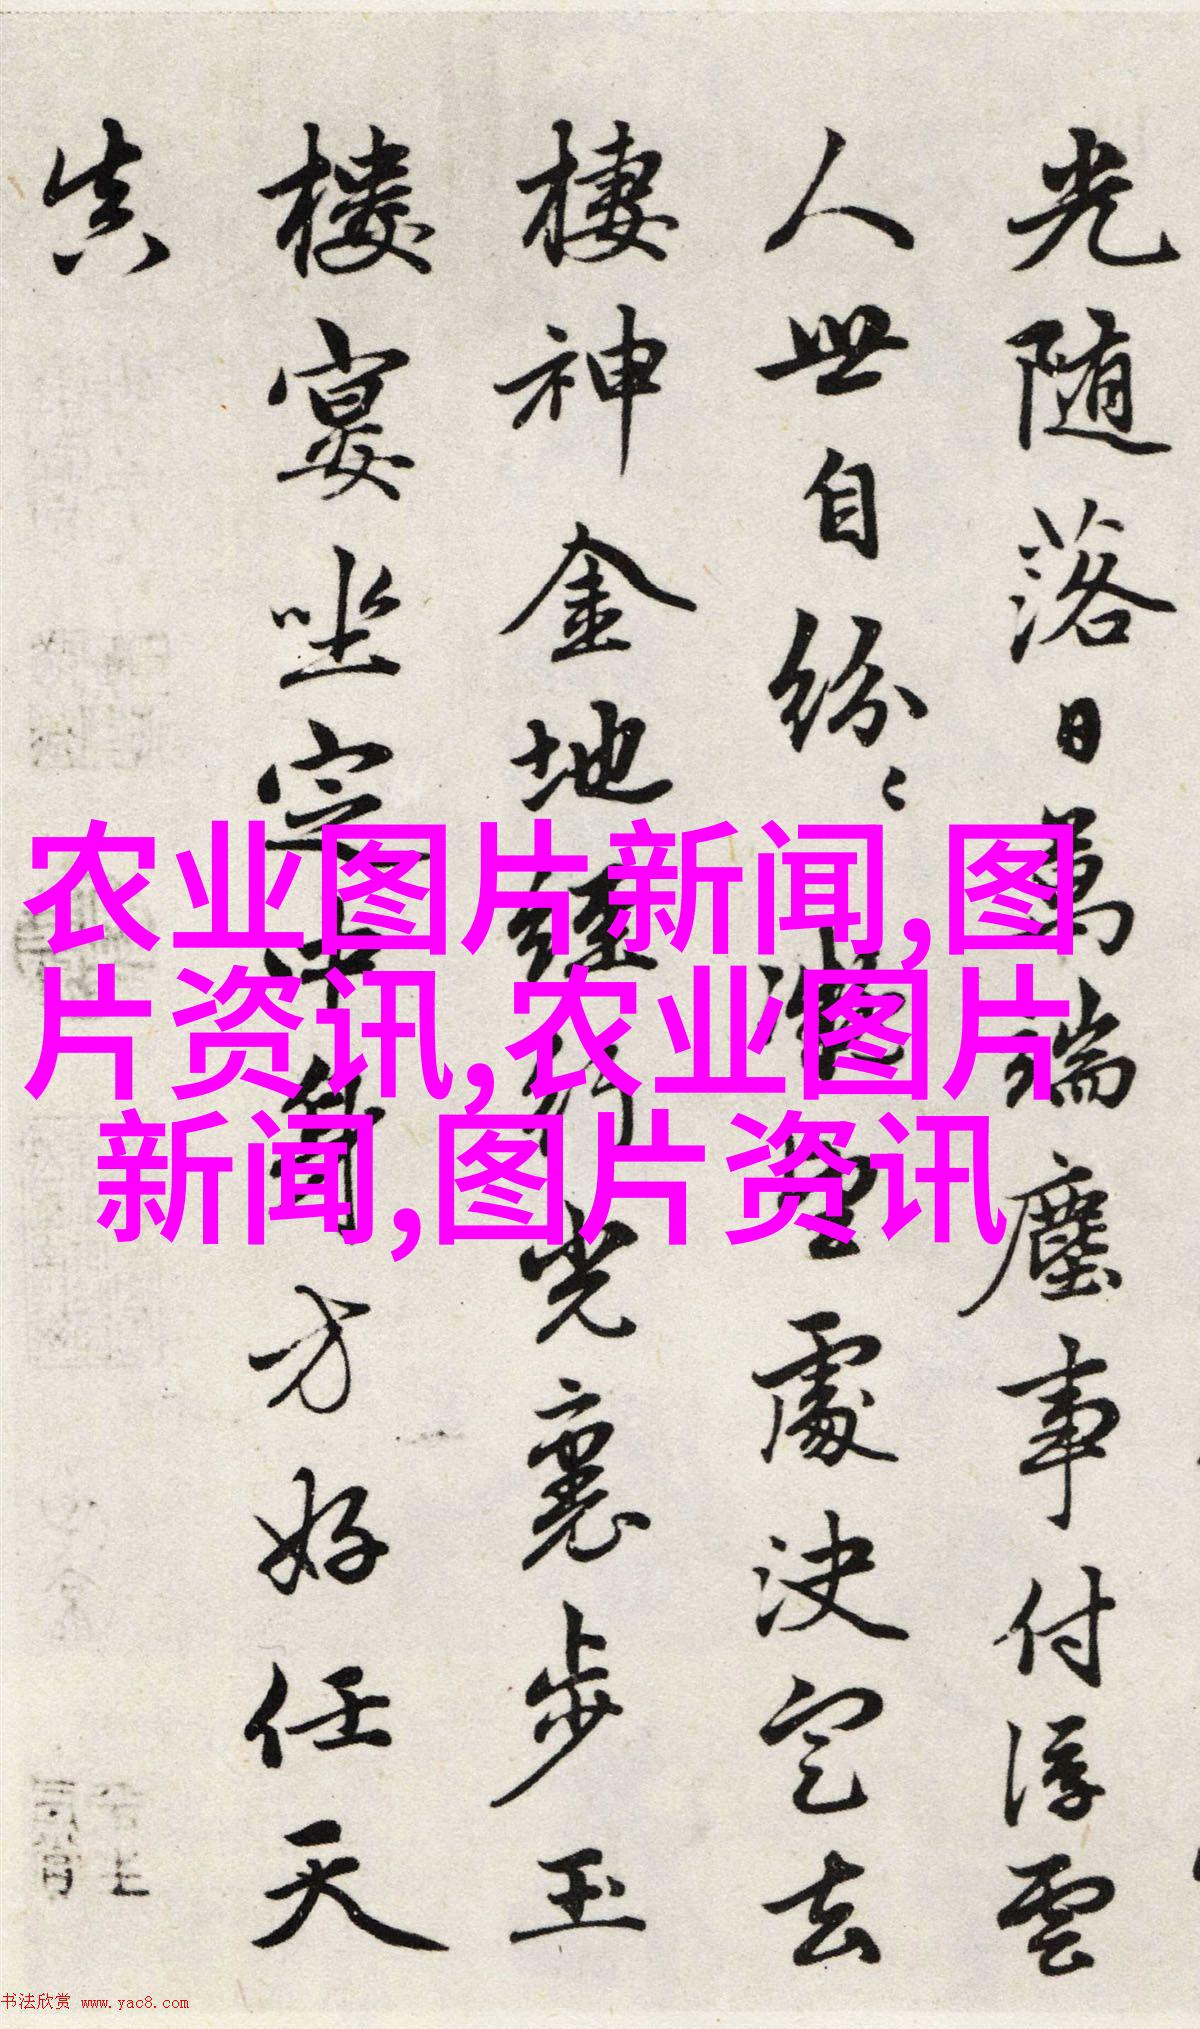 光随落日萬端塵事付浮雲
人世自紛〻處决定去
棲神金地經行光裏步玉
樓宴坐定中方好任天
真
农业图片新闻,图
片资讯,农业图片
新闻,图片资讯
书法欣赏 www.yac8.com